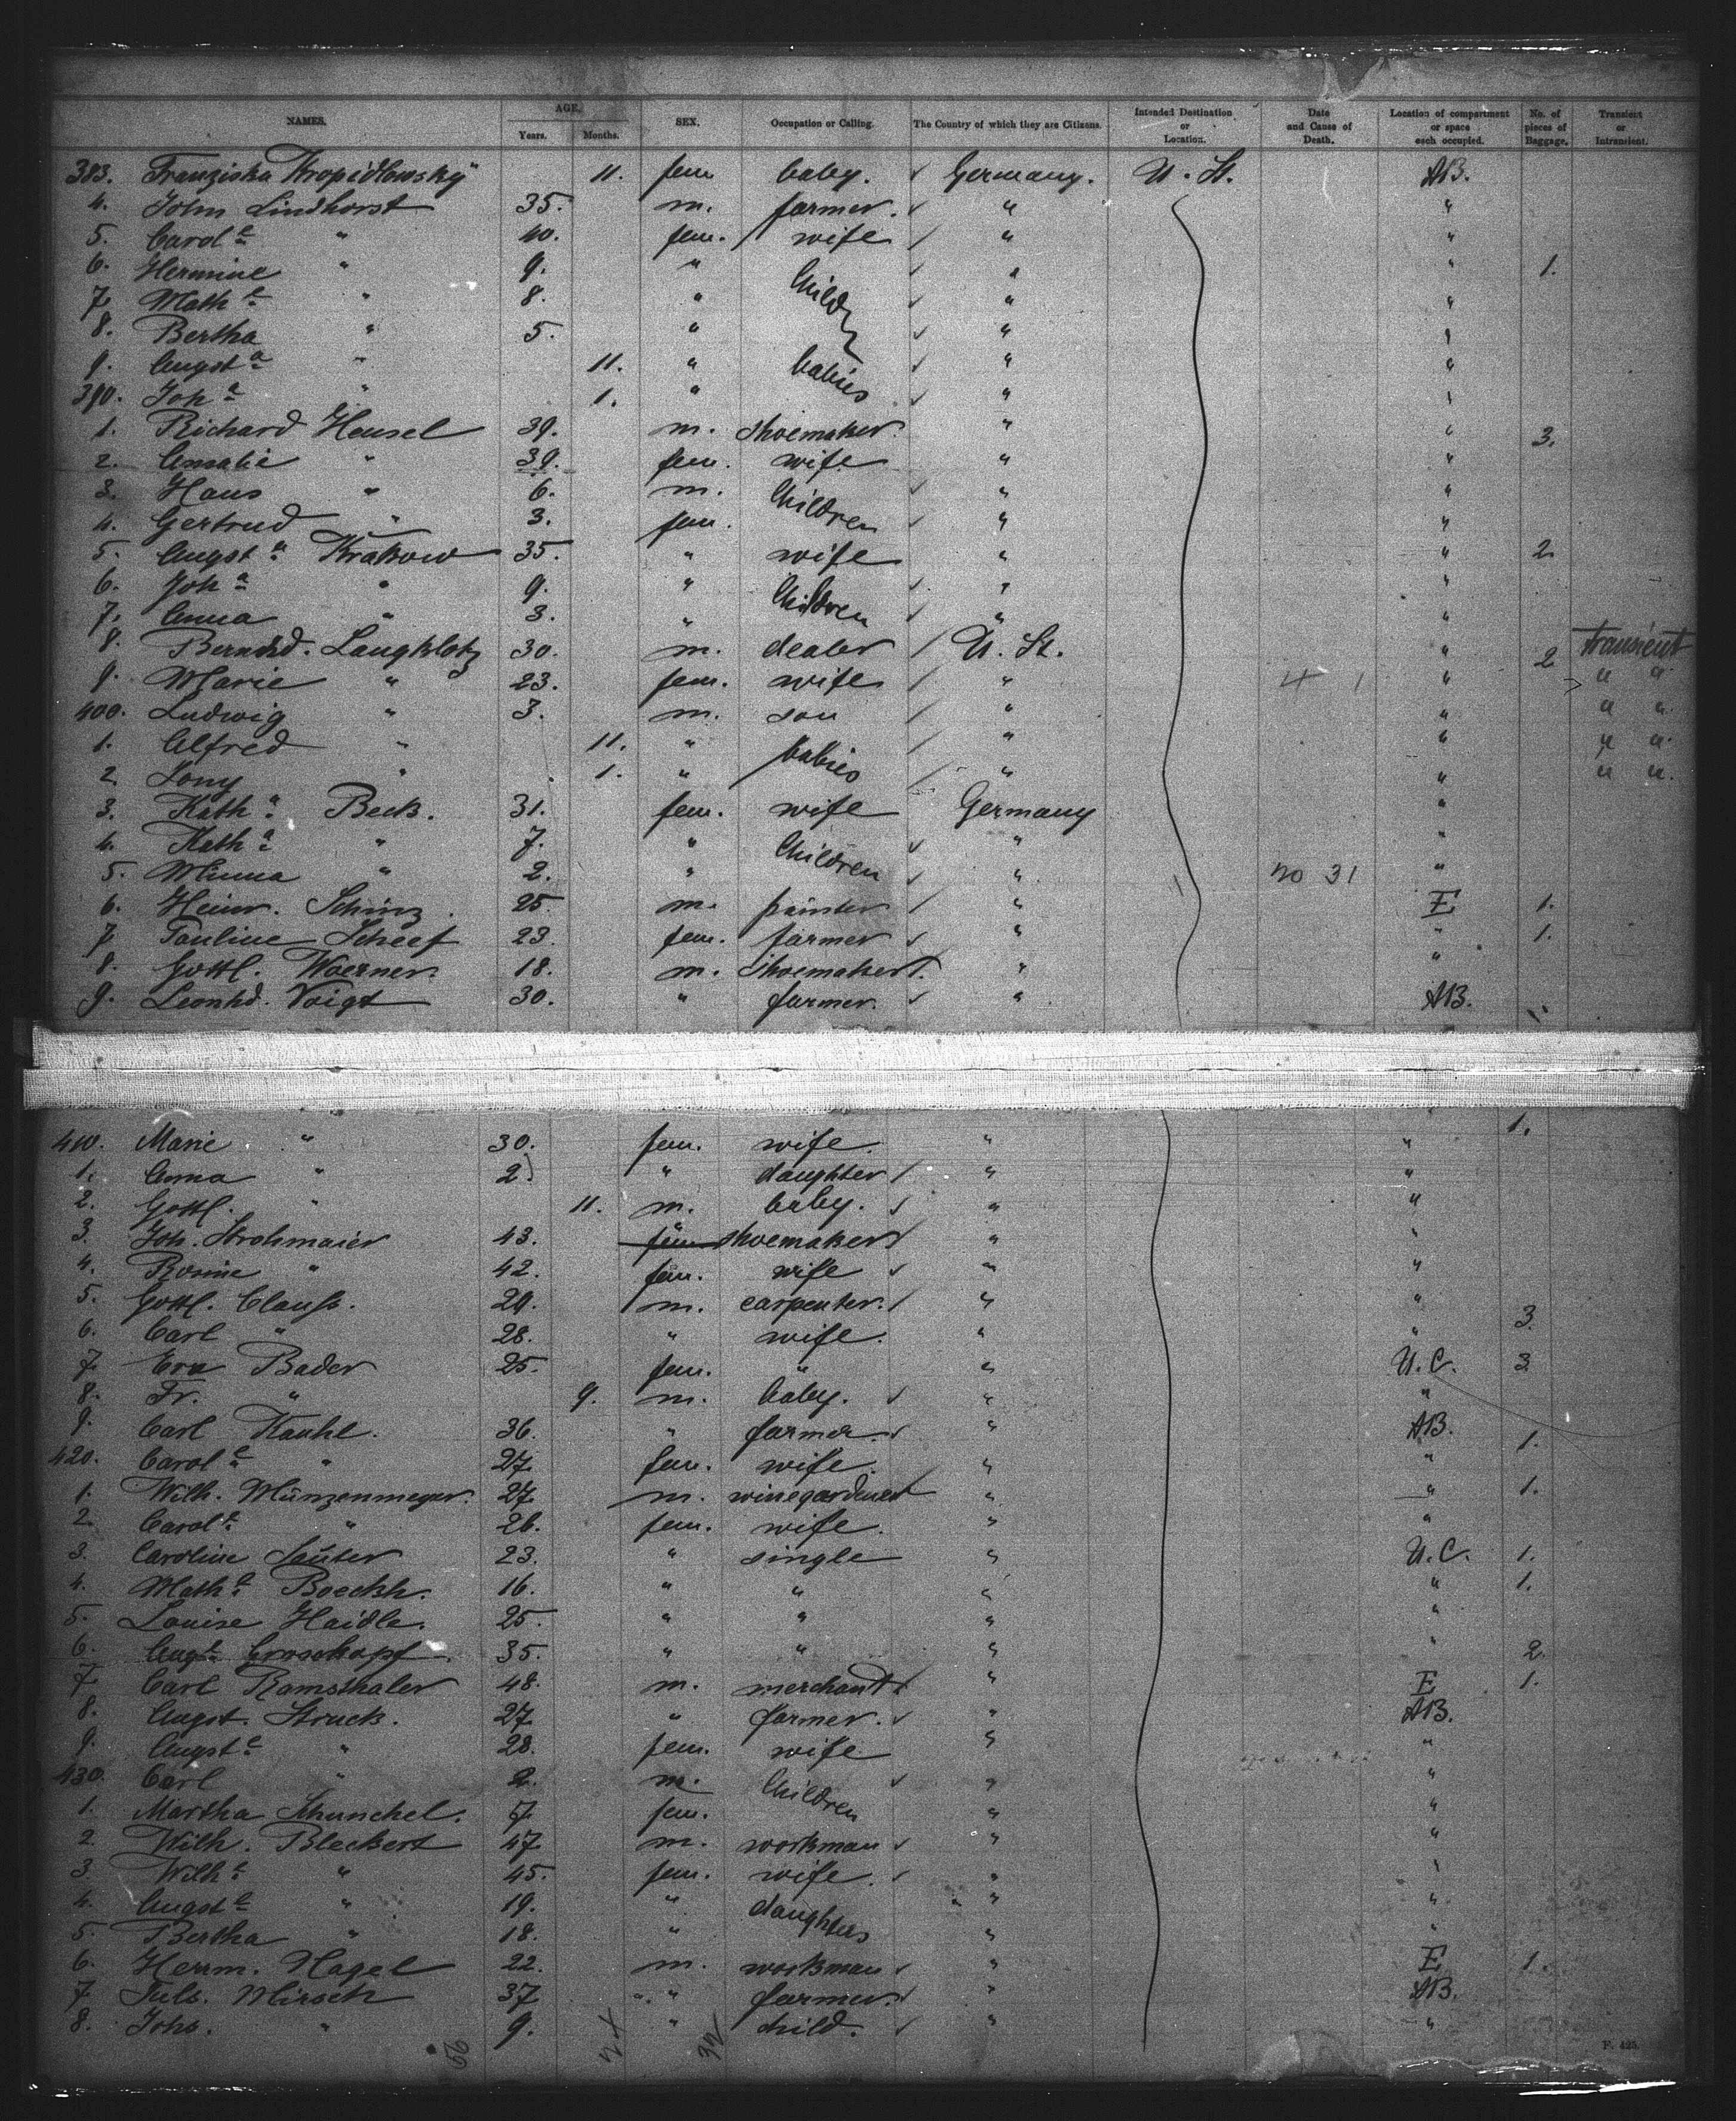 NAMES. AGE. Years. Months. SEX. Occupation or Calling. The Country of which they are Citizens. Intended Destination or Location. Date and Cause of Death. Location of compartment or space each occupied. No. of pieces of Baggage. Transient or Intransient.
383. Franziska Kropidlowsky 11. fem baby. Germany. U. St. AB.
4. John Lindhorst 35. m. farmer. " "
5. Carol e " 40. fem. wife " "
6. Hermine " 9. " Child " " 1.
7. Math e " 8. " " "
8. Bertha " 5. " " "
9. Augst a " 11. " babies " "
390. Joh a " 1. " " "
1. Richard Hensel 39. m. shoemaker. " " 3.
2. Amalie " 39. fem. wife " "
3. Hans " 6. m. Children " "
4. Gertrud " 3. fem. " "
5. Augst a Krakow 35. " wife " " 2.
6. Joh a " 9. " Children " "
7. Anna " 3. " " "
8. Bernhd. Langklotz 30. m. dealer U. St. " 2 transient
9. Marie " 23. fem. wife " " " "
400. Ludwig " 3. m. son " " " "
1. Alfred " 11. " babies " " " "
2. Tony " 1. " " " " "
3. Kath a Beck. 31. fem. wife Germany "
4. Kath a " 7. " Children " "
5. Minna " 2. " " no 31 "
6. Heinr. Schinz. 25. m. painter " E 1.
7. Pauline Scheef 23. fem. farmer " " 1.
8. Gottl. Woerner. 18. m. shoemaker. " "
9. Leonhd. Voigt 30. " farmer. " AB. "
1.
410. Marie " 30. fem. wife. " "
1. Anna " 2. " daughter " "
2. Gottl. " 11. m. baby. " "
3. Joh. Strohmaier 43. fem shoemaker " "
4. Rosine " 42. fem. wife " "
5. Gottl. Clauss. 29. m. carpenter. " " 3.
6. Carl " 28. " wife. " "
7. Eva Bader 25. fem. " " U.C. 3.
8. Fr. " 9. m. baby. " "
9. Carl Kauhl. 36. " farmer. " AB. 1.
420. Carol e " 27. fem. wife. " "
1. Wilh. Münzenmeyer. 27. m. winegardener " " 1.
2. Carol e " 26. fem. wife. " "
3. Caroline Sauter 23. " single " U.C. 1.
4. Math e Boeckh. 16. " " " " 1.
5. Louise Haidle. 25. " " " "
6. Aug e Grosskopf. 35. " " " " 2.
7. Carl Ramsthaler 48. m. merchant " E 1.
8. Augst. Struck. 27. " farmer. " AB.
9. Augst e " 28. fem. wife " "
430. Carl " 2. m. Children " "
1. Martha Schunchel. 7. fem. " "
2. Wilh. Bleckert 47. m. workman " "
3. Wilh e " 45. fem. wife. " "
4. Augst e " 19. " daughters " "
5. Bertha " 18. " " "
6. Herrm. Nagel 22. m. workman " E 1.
7. Juls. Mirsch 37. " farmer. " AB.
8. Johs. " 9. " child. " "
F. 425.